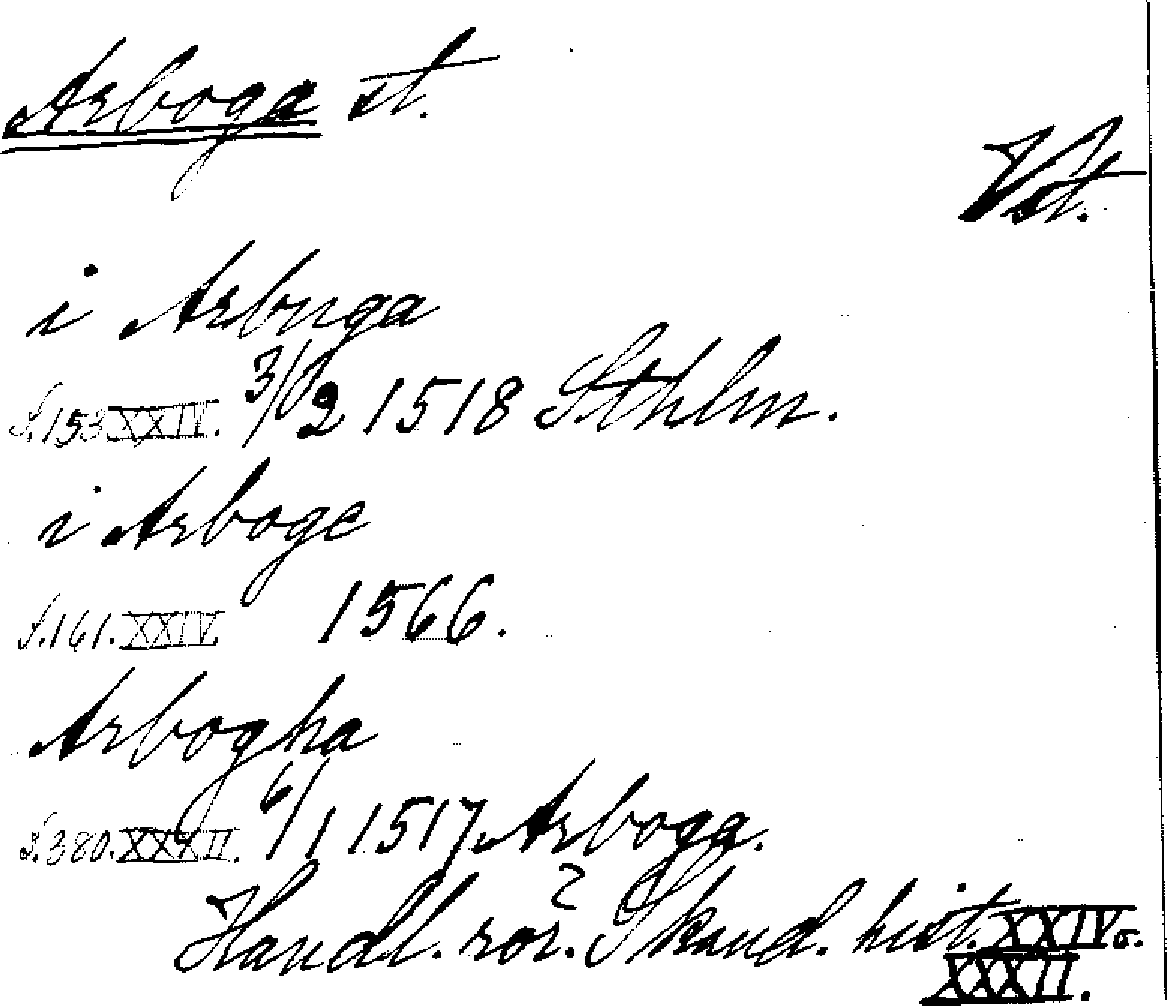 Arboga st.
Vst.
i Arbuga
S. 153 XXIV. 3/2 1518 Sthlm.
i Arboge
S. 161. XXIV. 1566.
Arbogha
S. 380. XXXII. 6/1 1517 Arboga.
Handl. rör. Skand. hist. XXIV o.
XXXII.